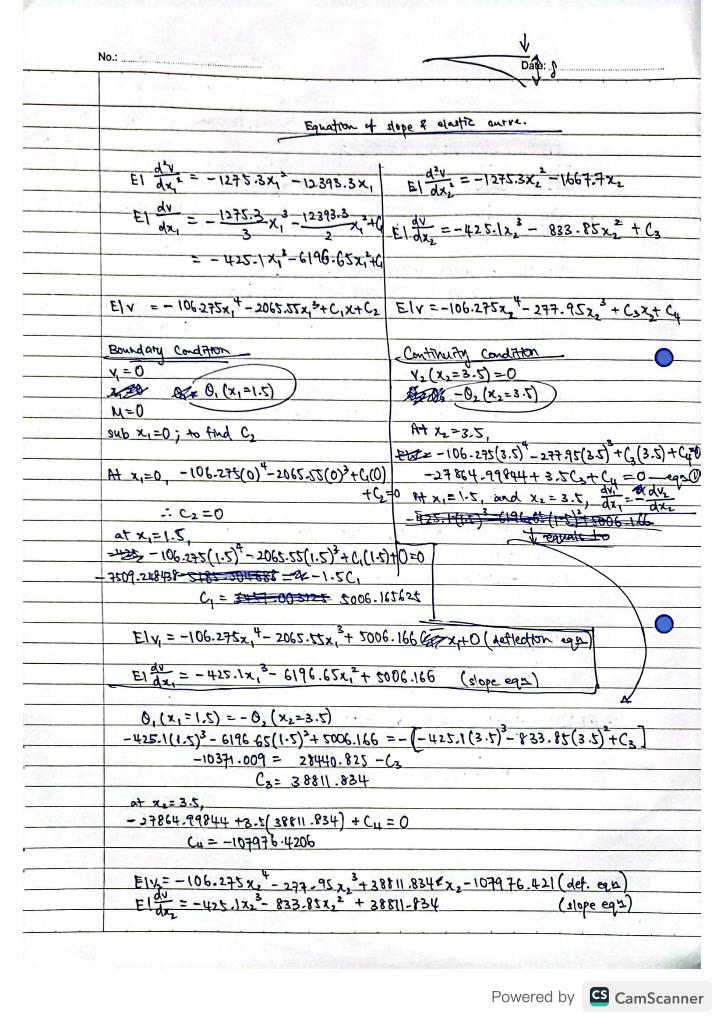 No.:
Date: δ
Equation of slope & elastic curve.
EI d²v/dx₁² = -1275.3x₁² - 12393.3x₁
EI dv/dx₁ = -1275.3/3 x₁³ - 12393.3/2 x₁² + C₁
= -425.1x₁³ - 6196.65x₁² + C₁
EIv = -106.275x₁⁴ - 2065.55x₁³ + C₁x + C₂
EI d²v/dx₂² = -1275.3x₂² - 1667.7x₂
EI dv/dx₂ = -425.1x₂³ - 833.85x₂² + C₃
EIv = -106.275x₂⁴ - 277.95x₂³ + C₃x₂ + C₄
Boundary Condition
v₁ = 0
θ₁(x₁=1.5)
M=0
sub x₁=0; to find C₂
At x₁=0, -106.275(0)⁴ - 2065.55(0)³ + C₁(0)
+ C₂ = 0
∴ C₂ = 0
at x₁=1.5,
-106.275(1.5)⁴ - 2065.55(1.5)³ + C₁(1.5) + 0 = 0
-7509.248438 = -1.5C₁
C₁ = 5006.165625
Continuity Condition
v₂(x₂=3.5) = 0
-θ₂(x₂=3.5)
At x₂=3.5,
-106.275(3.5)⁴ - 277.95(3.5)³ + C₃(3.5) + C₄=0
-27864.99844 + 3.5C₃ + C₄ = 0 — eqn①
At x₁=1.5, and x₂=3.5, dv₁/dx₁ = -dv₂/dx₂
↓ equals to
EIv₁ = -106.275x₁⁴ - 2065.55x₁³ + 5006.166 x₁+0 (deflection eqn)
EI dv/dx₁ = -425.1x₁³ - 6196.65x₁² + 5006.166 (slope eqn)
θ₁(x₁=1.5) = -θ₂(x₂=3.5)
-425.1(1.5)³ - 6196.65(1.5)² + 5006.166 = -[-425.1(3.5)³ - 833.85(3.5)² + C₃]
-10371.009 = 28440.825 - C₃
C₃ = 38811.834
at x₂=3.5,
-27864.99844 + 3.5(38811.834) + C₄ = 0
C₄ = -107976.4206
EIv₂ = -106.275x₂⁴ - 277.95x₂³ + 38811.834 x₂ - 107976.421 (def. eqn)
EI dv/dx₂ = -425.1x₂³ - 833.85x₂² + 38811.834 (slope eqn)
Powered by CS CamScanner